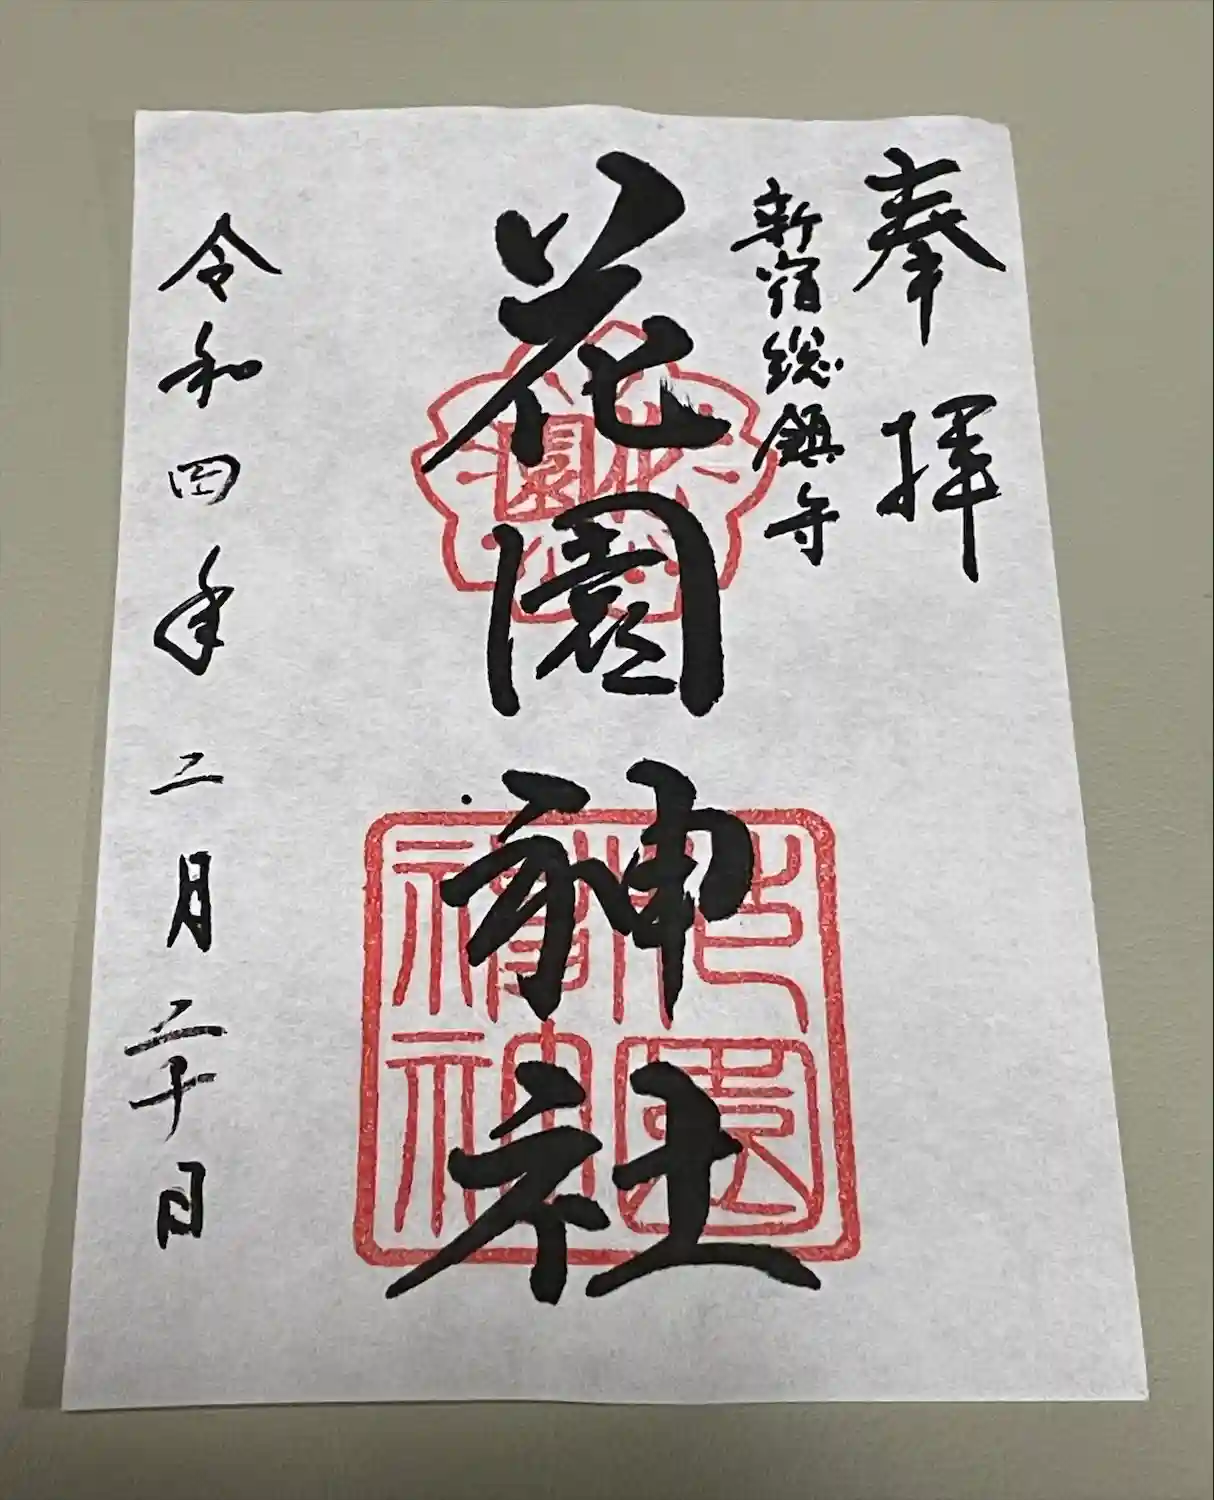 奉拝
新宿総鎮守
花園神社
令和四年二月二十日
花園
花園神社